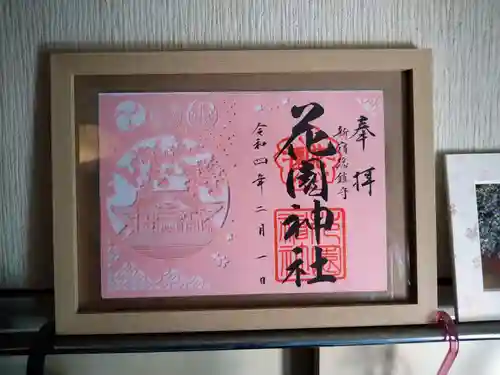 奉拝
新宿総鎮守
花園神社
令和四年二月一日